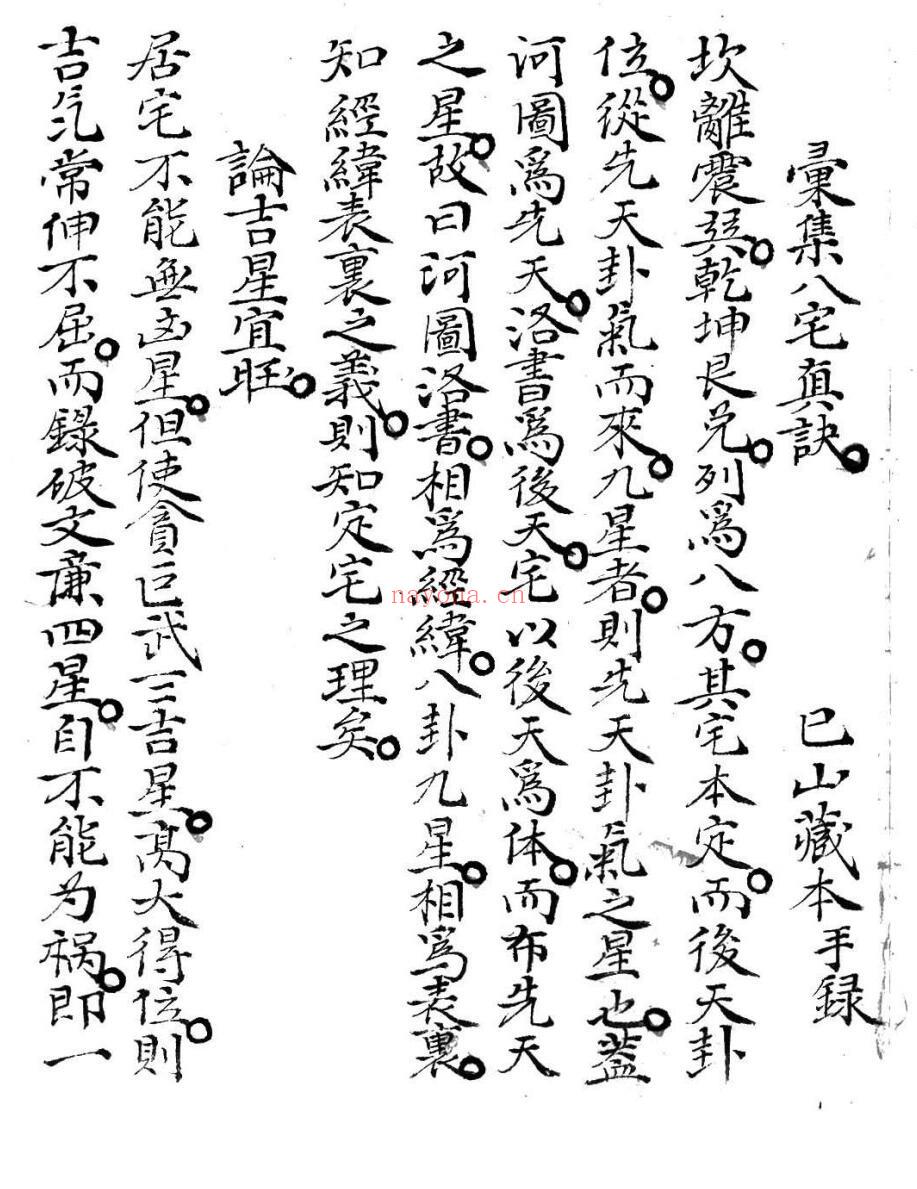 彙集八宅真訣。 巳山藏本手録
坎離震巽。乾坤艮兑。列爲八方。其宅本定。而後天卦
位。從先天卦氣而來。九星者。則先天卦氣之星也。蓋
河圖爲先天。洛書爲後天。宅以後天爲体。而布先天
之星。故曰河圖洛書。相爲經緯。八卦九星。相爲表裏。
知經緯表裏之義。則知定宅之理矣。
論吉星宜旺。
居宅不能無凶星。但使貪巨武三吉星。高大得位。則
吉气常伸不屈。而録破文廉四星。自不能为祸。即一
nayona.cn